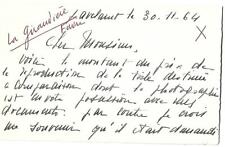 La Girandière
Lavelanet le 30.11.64
X
Cher Monsieur,
Voilà le montant du prix de
la reproduction de la toile destinée
à comparaison dont la photographie
est en votre possession avec les
documents. par contre je crois
me souvenir qu'il était demandé